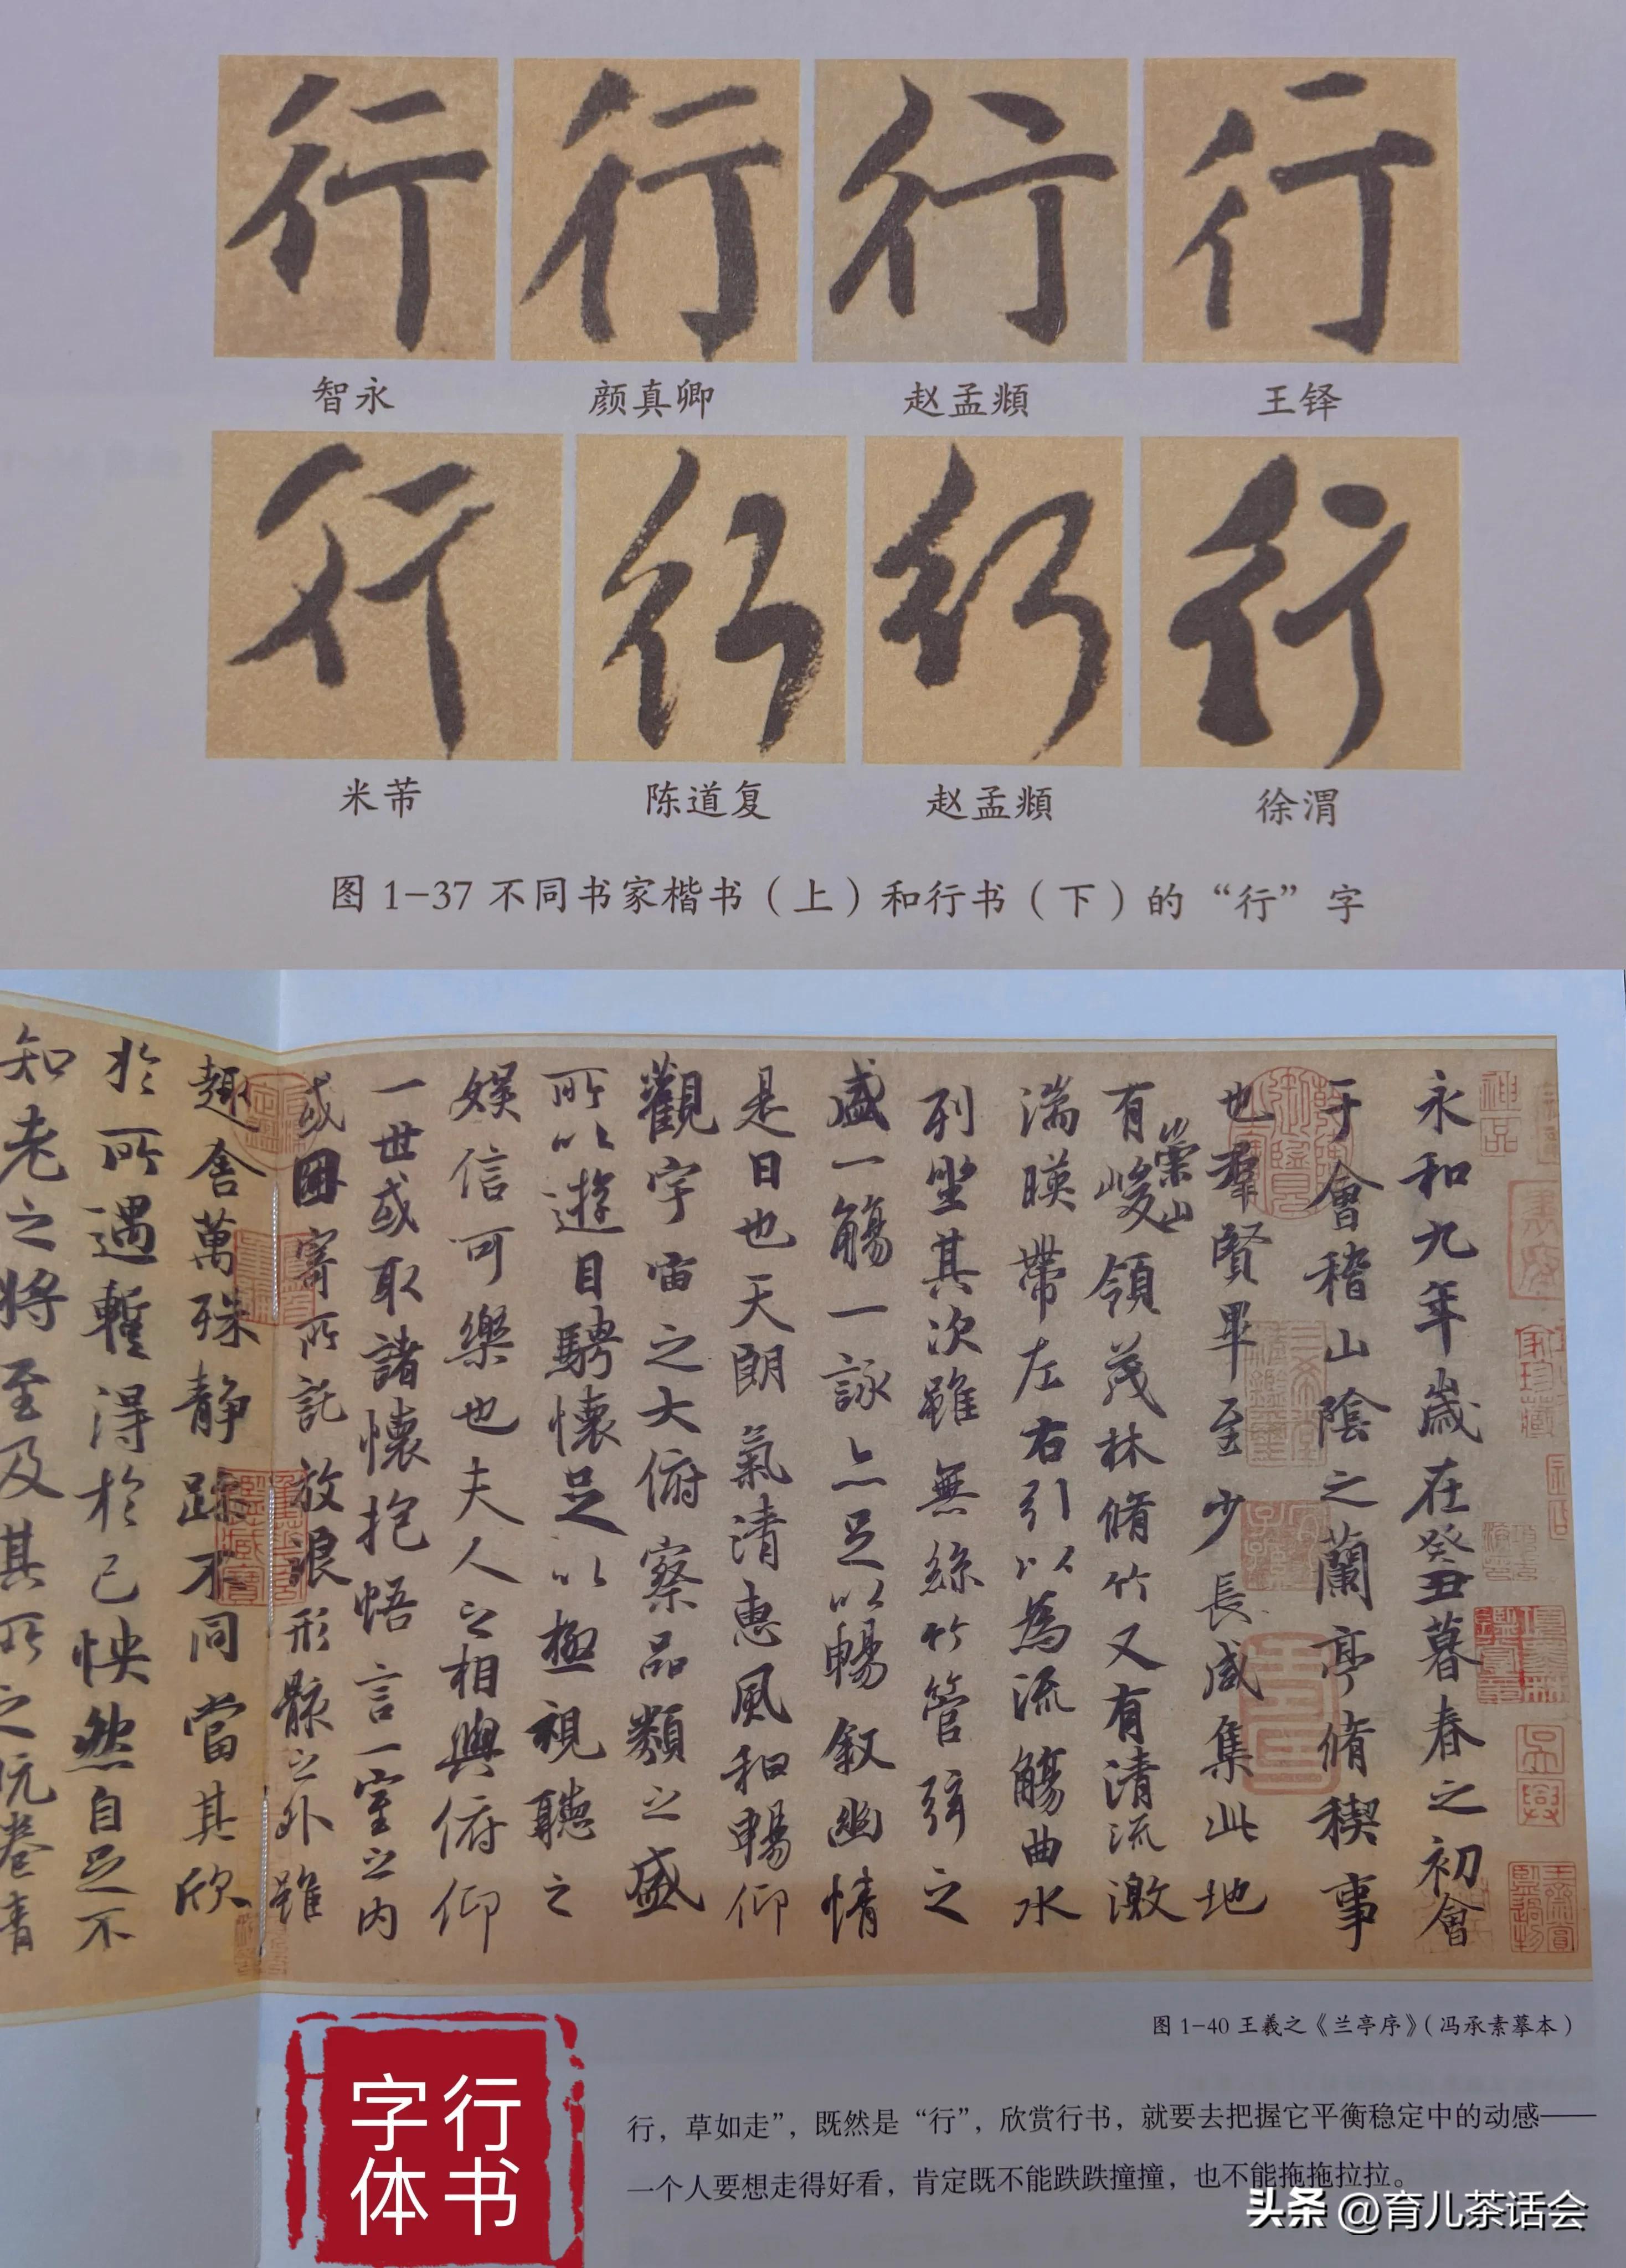 行 行 行 行
智永 颜真卿 赵孟頫 王铎
行 行 行 行
米芾 陈道复 赵孟頫 徐渭
图 1-37 不同书家楷书（上）和行书（下）的“行”字
永和九年歲在癸丑暮春之初會
于會稽山陰之蘭亭脩稧事
也羣賢畢至少長咸集此地
有崇山峻領茂林脩竹又有清流激
湍暎帶左右引以為流觴曲水
列坐其次雖無絲竹管弦之
盛一觴一詠亦足以暢敘幽情
是日也天朗氣清惠風和暢仰
觀宇宙之大俯察品類之盛
所以遊目騁懷足以極視聽之
娛信可樂也夫人之相與俯仰
一世或取諸懷抱悟言一室之內
或因寄所託放浪形骸之外雖
趣舍萬殊静躁不同當其欣
於所遇暫得於己怏然自足不
知老之將至及其所之
图 1-40 王羲之《兰亭序》（冯承素摹本）
行，草如走”，既然是“行”，欣赏行书，就要去把握它平衡稳定中的动感——
一个人要想走得好看，肯定既不能跌跌撞撞，也不能拖拖拉拉。
行书
字体
头条 @育儿茶话会